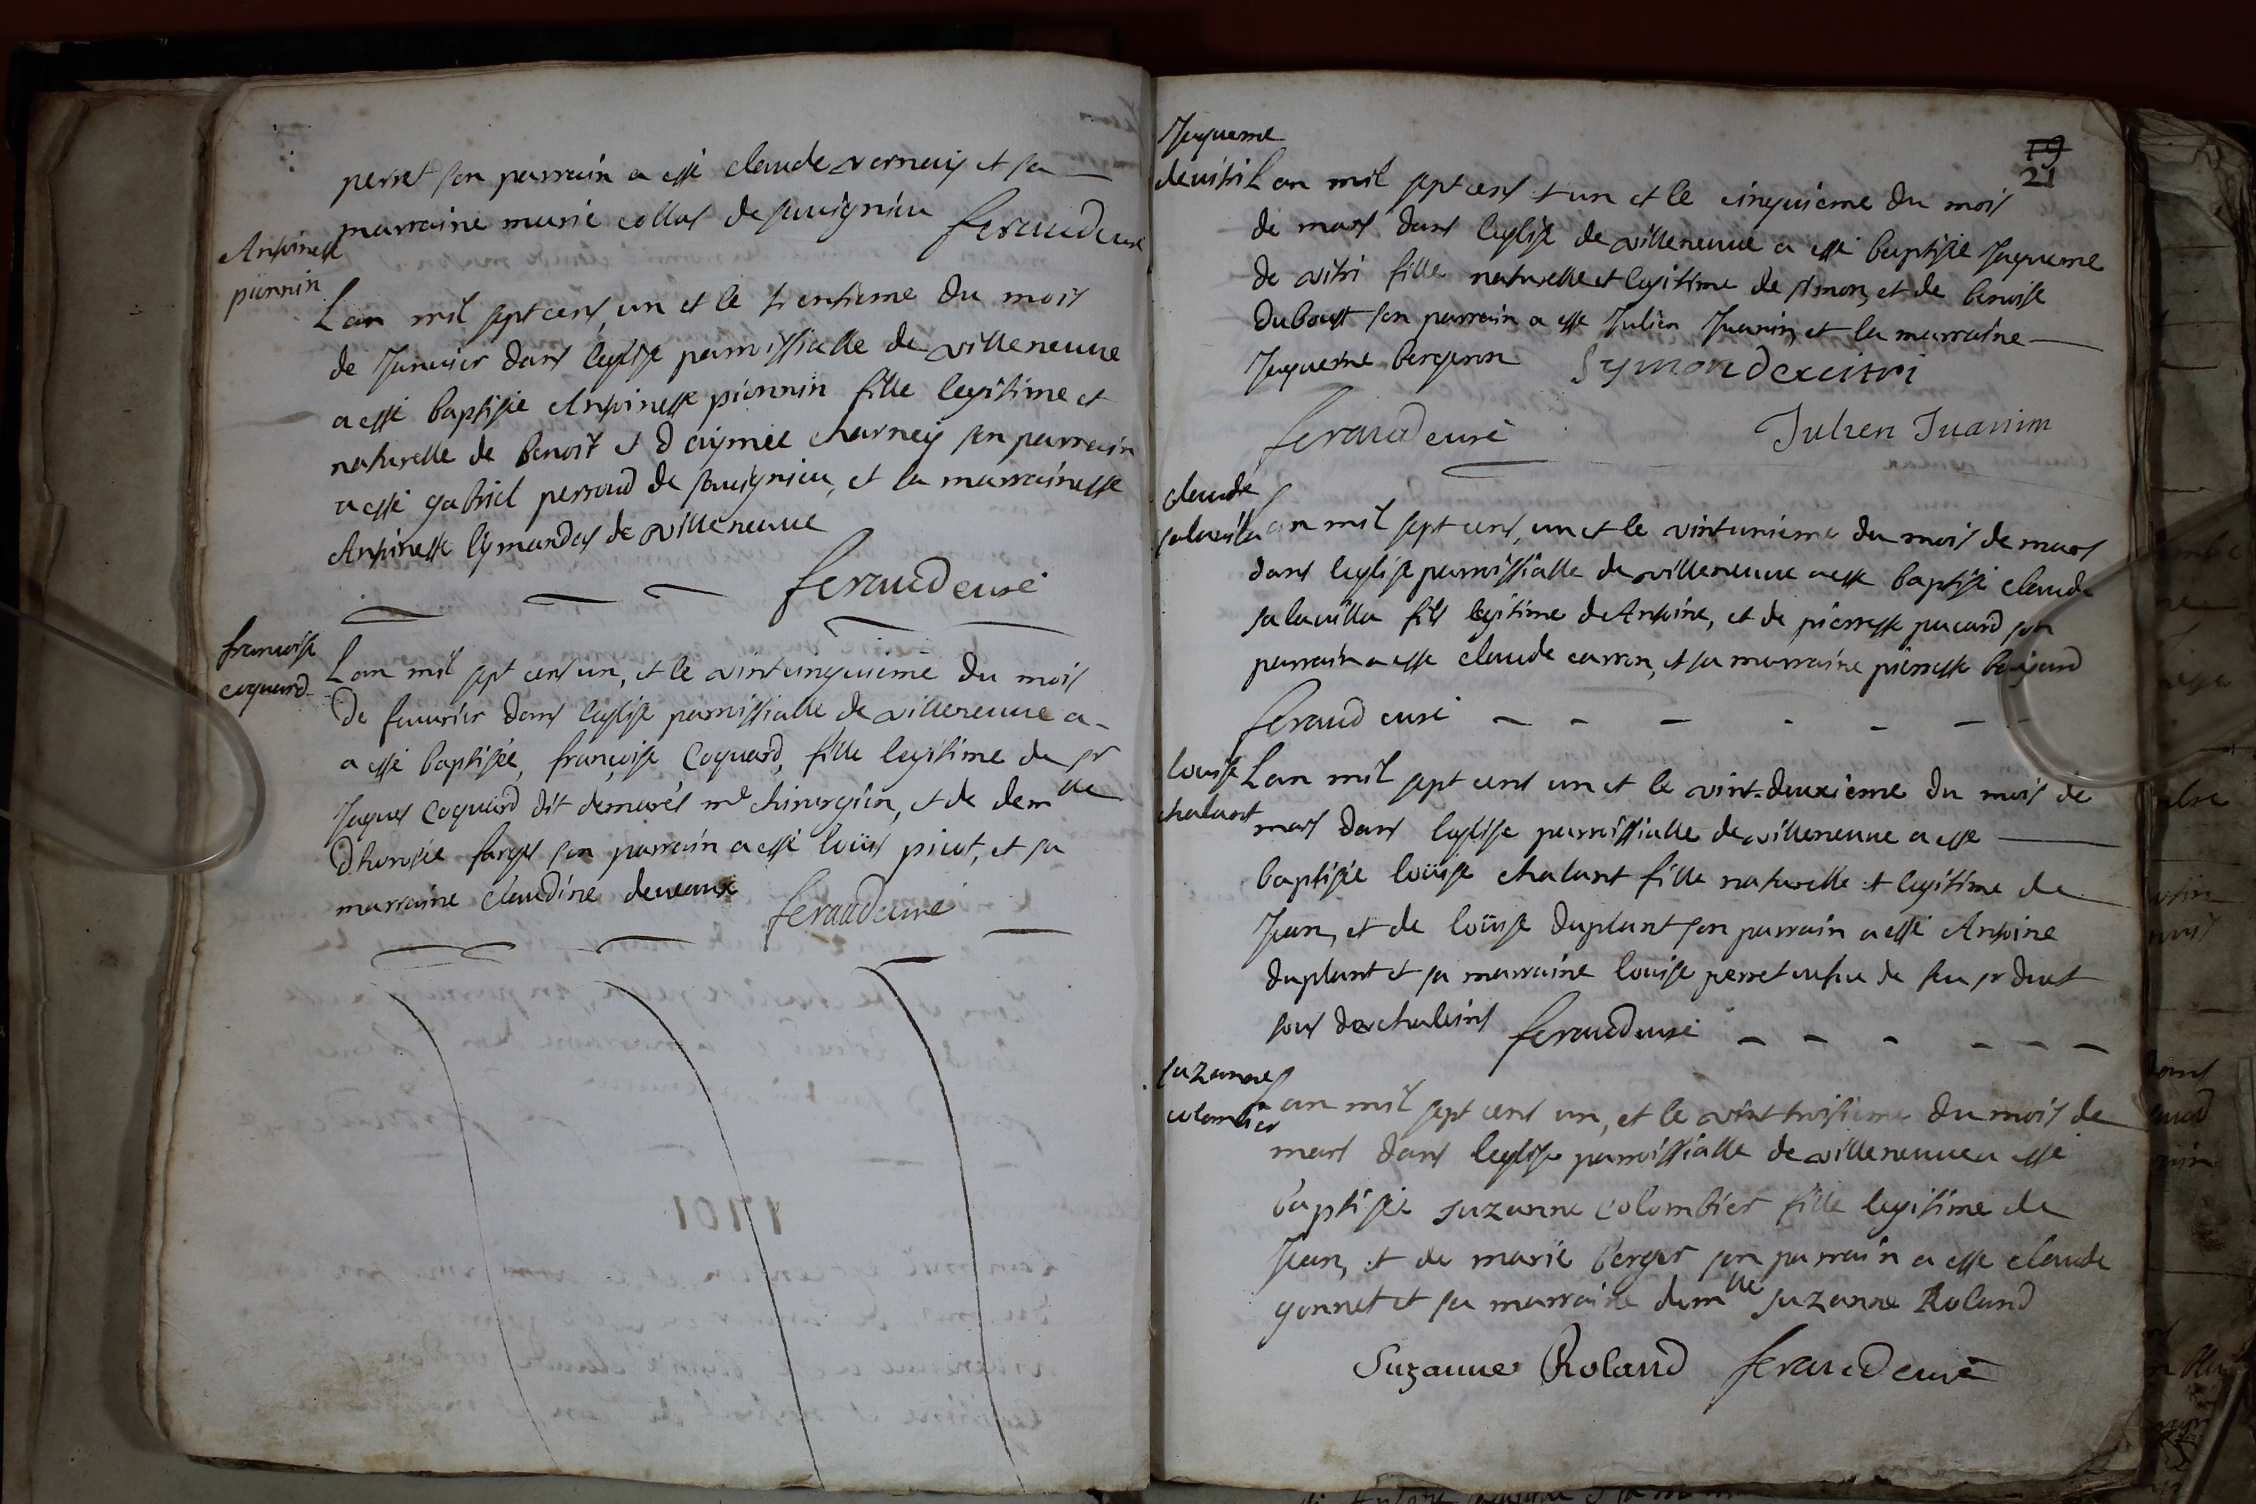 perret son parrain a esté claude verneis et sa
marraine marie collas de savignieu feraud curé
Antoinette
pionnin
Lan mil sept cens, un et le trentieme du mois
de Janvier dans leglise paroissialle de villeneuve
a esté baptisée Antoinette pionnin fille legitime et
naturelle de benoit et daymée charney son parrain
a esté gabriel perroud de savignieu, et la marraine esté
Antoinette lymandas de villeneuve
feraud curé
francoise
coquard
Lan mil sept cens un, et le vintcinquiéme du mois
de fevrier dans leglise paroissialle de villeneuve a
a esté baptisée, françoise Coquard, fille legitime de sr
Jaques Coquard dit demarés me chirurgien, et de demlle
dhonorée farges son parrain a esté loüis picot, et sa
marraine claudine deveaux feraud curé
1701
19
21
Jaqueme
devitri
Lan mil sept cens et un et le cinquieme du mois
de mars dans leglise de villeneuve a esté baptisée Jaqueme
de vitri fille naturelle et legitime de simon, et de benoite
duboust son parrain a esté Julien Juanin, et la marraine
Jaqueme bergeron Symon de vitri
feraud curé Julien Juanin
claude
salavilla
Lan mil sept cens, un et le vintunieme du mois de mars
dans leglise paroissialle de villeneuve a esté baptisé claude
salavilla fils legitime de Antoine, et de pierrette pacard son
parrain a esté claude carron, et sa marraine pierrette beajard
feraud curé
louise
chalant
Lan mil sept cens un et le vint-deuxieme du mois de
mars dans leglise paroissialle de villeneuve a esté
baptisée loüise chalant fille naturelle et legitime de
Jean, et de loüise duplant son parrain a esté Antoine
duplant et sa marraine louise perret vefve de feu sr duct
feraud curé
suzanne
colombier
Lan mil sept cens un, et le vint troisieme du mois de
mars dans leglise paroissialle de villeneuve a esté
baptisée suzanne colombier fille legitime de
Jean, et de marie berger son parrain a esté claude
gonnet et sa marraine demlle suzanne Roland
Suzanne Roland feraud curé